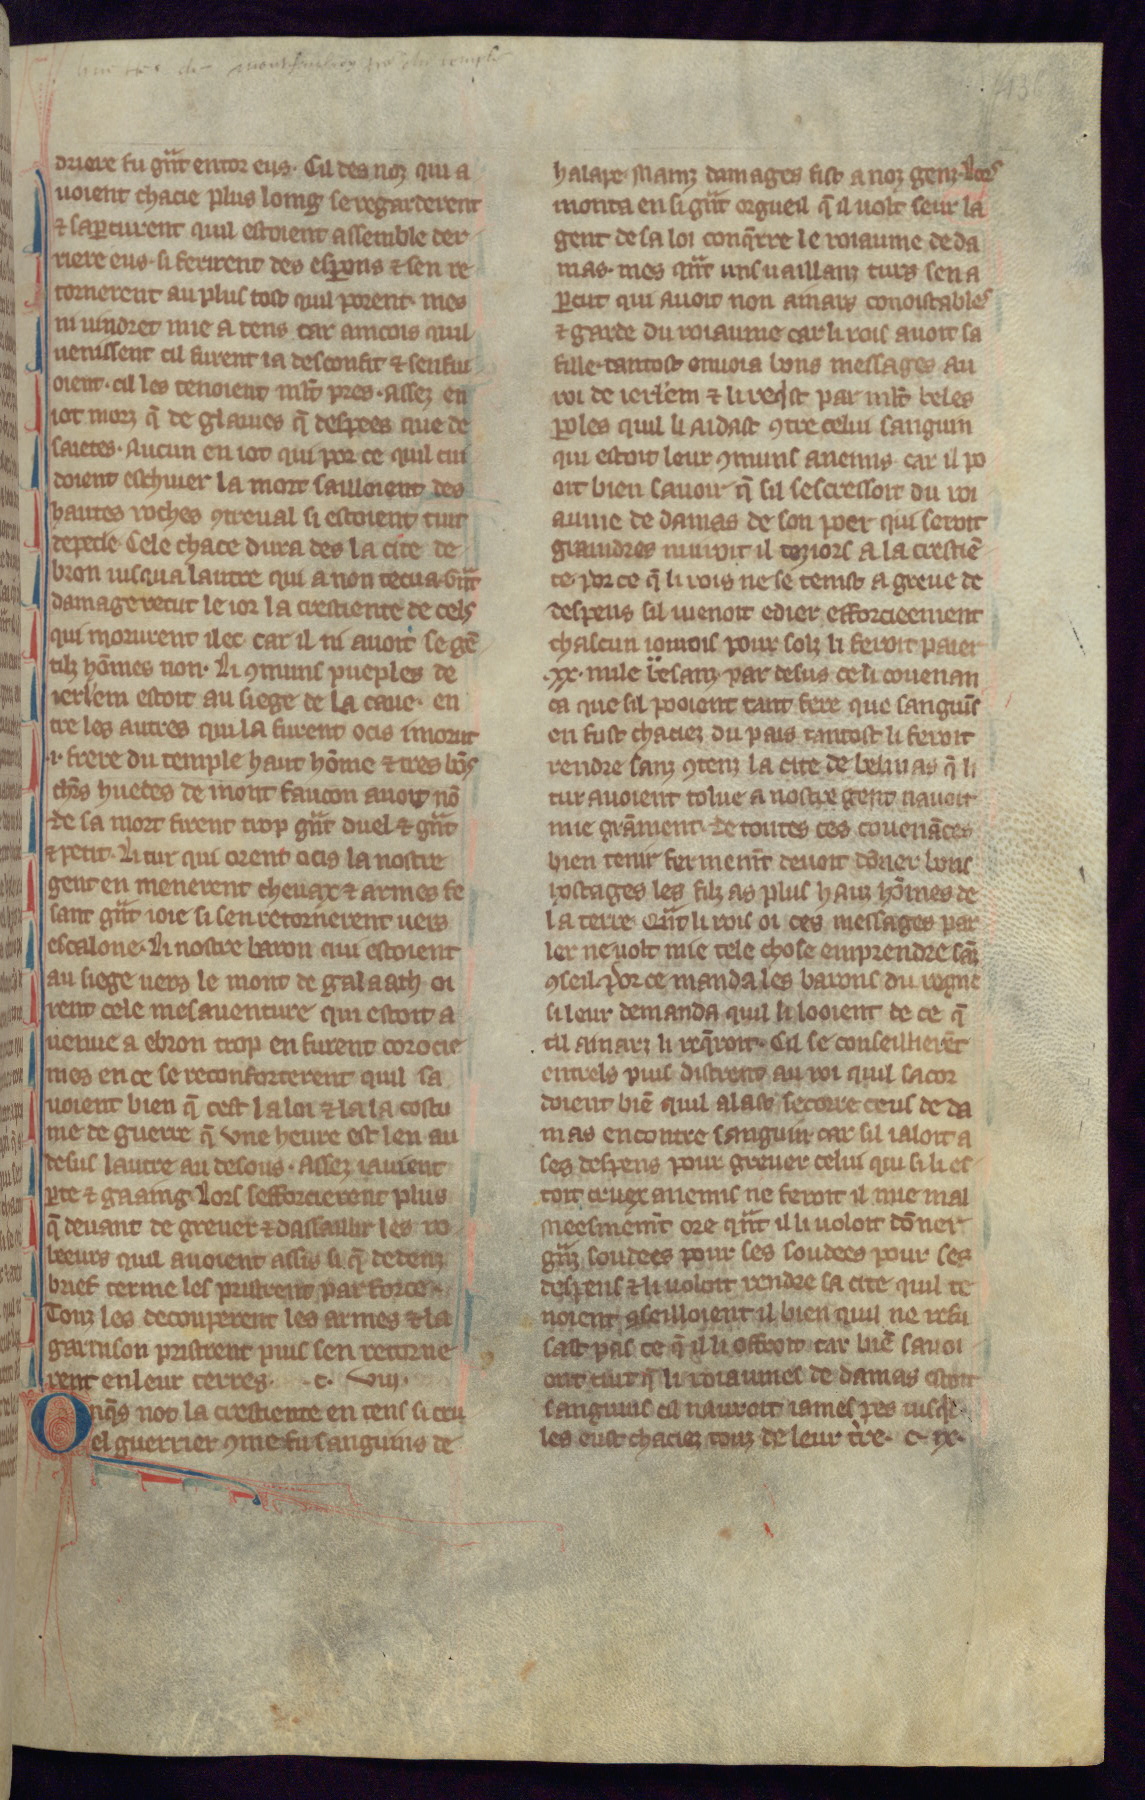 huedes de montfaucon du temple
136
driere fu gñt entor eus. Cil des noz qui a
uoient chacie plus loing se regarderent
⁊ saꝑcurent quil estoient assemble der
riere eus. si ferirent des esꝑons ⁊ sen re
tornerent au plus tost quil porent. mes
ni uindret mie a tens car aincois quil
uenissent cil furent ia desconfit ⁊ senfui
oient. cil les tenoient ml̃t pres. assez en
iot morz q̃ de glaiues q̃ despees que de
saietes. Aucun en iot qui por ce quil cui
doient eschiuer la mort sailloient des
hautes roches ꝯtreual si estoient tuit
depecie. Cele chace dura des la cite de
bron iusqua lautre qui a non tecua. Gñt
damage recut le ior la crestiente de cels
qui morurent ilec car il ni auoit se gẽ
tilz hõmes non. Li ꝯmuns pueples de
ierl̃em estoit au siege de la caue. en
tre les autres qui la furent ocis i morut
.i. frere du temple haut hõme ⁊ tres bõs
chr̃s huedes de mont faucon auoit nõ
de sa mort firent trop gñt duel ⁊ gñt
⁊ petit. Li tur qui orent ocis la nostre
gent en menerent cheuax ⁊ armes fe
sant gñt ioie si sen retornerent uers
escalone. Li nostre baron qui estoient
au siege uers le mont de galaath oi
rent cele mesauenture qui estoit a
uenue a ebron trop en furent corocie
mes en ce se reconforterent quil sa
uoient bien q̃ cest la loi ⁊ la la costu
me de guerre q̃ vne heure est len au
desus lautre au desous. assez iauient
ꝑte ⁊ gaaing. Lors sefforcierent plus
q̃ deuant de greuer ⁊ dassaillir les ro
beeurs quil auoient assis si q̃ dedenz
brief terme les pristrent par force.
Touz les decouperent les armes ⁊ la
garnison pristrent puis sen retorne
rent en leur terres. .c. viii.
Onq̃s not la crestiente en tens si cru
el guerrier ꝯme fu sanguins de
halape. Mainz damages fist a noz genz. Lors
monta en si gñt orgueil q̃ il uolt seur la
gent de sa loi conq̃rre le roiaume de da
mas. mes qñt uns uaillanz turs sen a
ꝑcut qui auoit non ainars conoistables
⁊ garde du roiaume car li rois auoit sa
fille. tantost enuoia bons messages au
roi de ierl̃em ⁊ li requist par ml̃t beles
ꝑoles quil li aidast ꝯtre celui sanguin
qui estoit leur ꝯmuns anemis. car il po
oit bien sauoir q̃ sil sescressoit du roi
aume de damas de son poer qui seroit
graindres nuiroit il toziors a la crestiẽ
te. por ce q̃ li rois ne se tenist a greue de
despens sil uenoit edier efforcieement
chascun iornois pour solz li feroit paier
.xx. mile besanz. par desus ce li couenan
ca que sil pooient tant fere que sanguĩs
en fust chaciez du pais tantost li feroit
rendre sanz ꝯtenz la cite de belinas q̃ li
tur auoient tolue a nostre gent nauoit
mie grãment. de toutes ces couenãces
bien tenir fermem̃t deuoit dõner bons
hostages les filz as plus hauz hõmes de
la terre. Qñt li rois oi ces messages par
ler ne uolt mie tele chose emprendre sãz
ꝯseil. Por ce manda les barons du regne
si leur demanda quil li looient de ce q̃
cil ainarz li req̃roit. Cil se conseillierẽt
entrels puis distrent au roi quil sacor
doient biẽ quil alast secorre ceus de da
mas encontre sanguin. car sil ialoit a
ses despens pour greuer celui qui si li es
toit cruex anemis ne feroit il mie mal
meesmem̃t ore qñt il li uoloit dõner
gñz soudees pour ses soudees pour ses
despens ⁊ li uoloit rendre sa cite quil te
noient ꝯseilloient il bien quil ne refu
sast pas ce q̃ il li offroit car biẽ sauoi
ent tuit q̃ li roiaumes de damas estoit
sanguins cil nauroit iames pes iusq̃
les eust chaciez touz de leur tr̃e. c. ix.